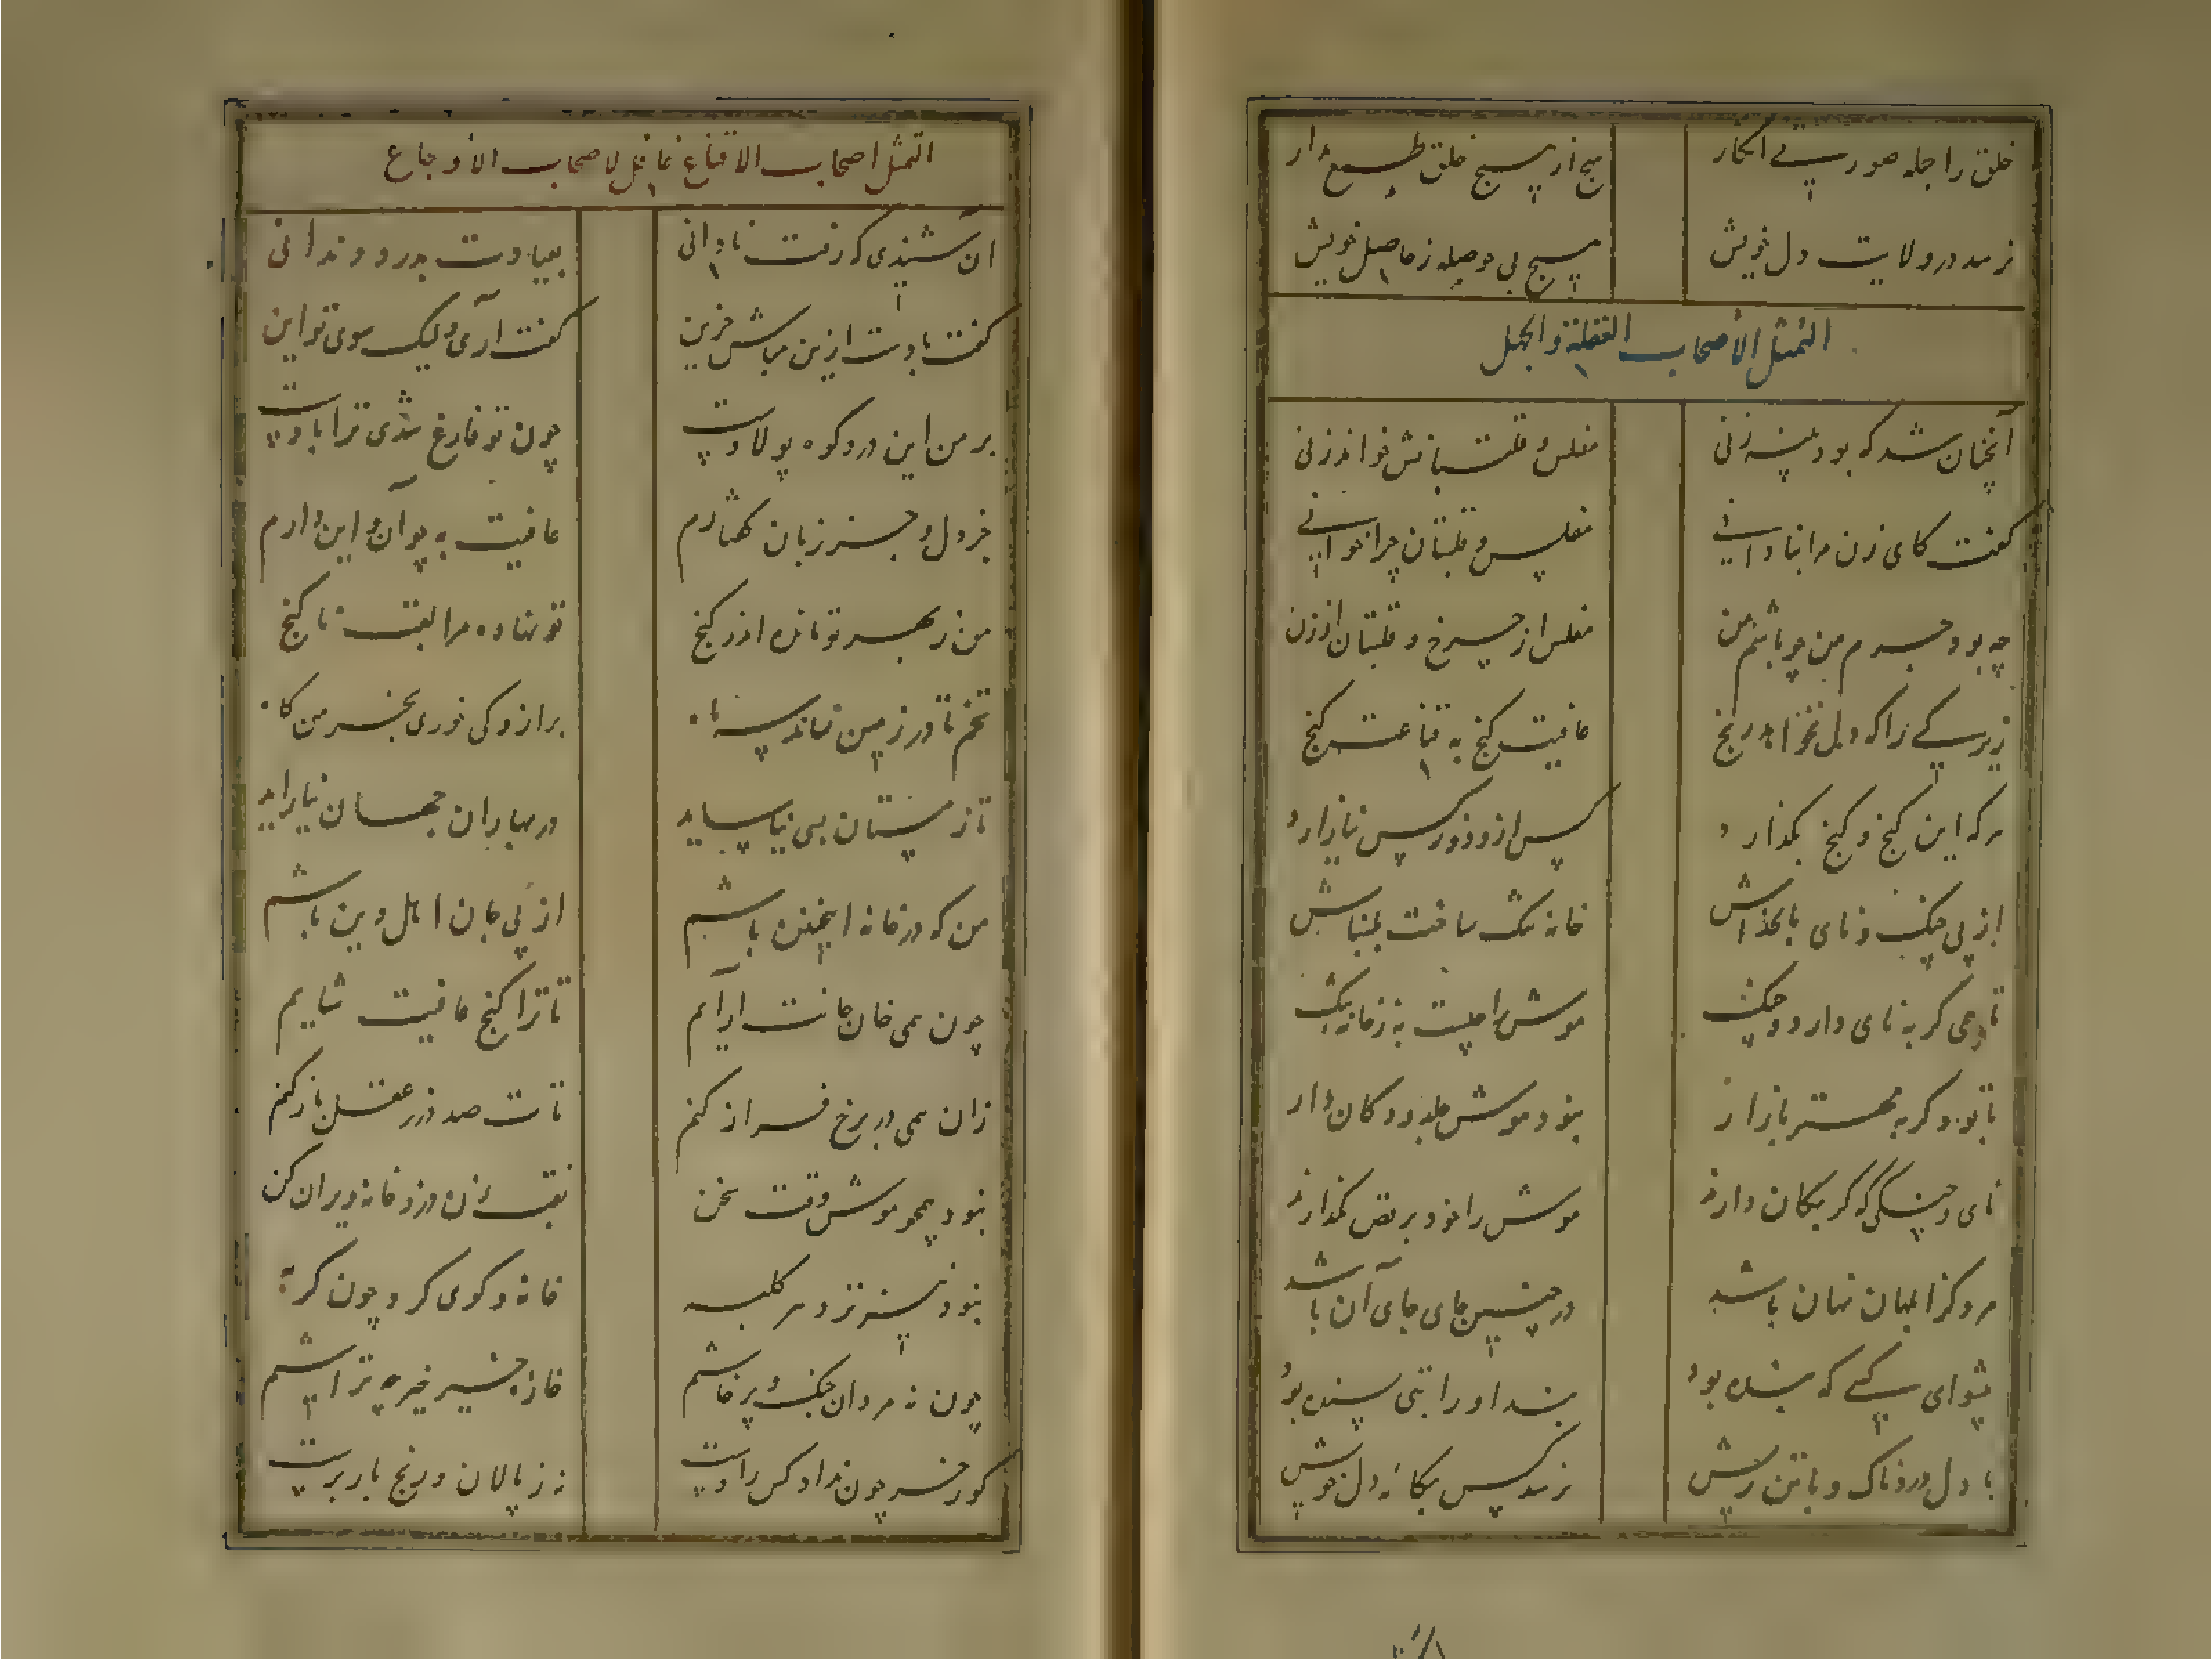 خلق را جمله صورتی انکار هیچ از هیچ خلق طمع مدار
نرسد در ولایت دل خویش هیچ بی حوصله ز حاصل خویش
التمثل لاصحاب الغفلة و الجهل
آنچنان شد که بود پنبه زنی مفلس و قلتبانش خواند زنی
گفت کای زن مرا بنادانی مفلس و قلتبان چرا خوانی
چه بود جرم من چو باشم من مفلس از چرخ و قلتبان از زن
زیرکی را که دل نخواهد رنج عافیت گنج به قناعت گنج
هرکه این گنج و گنج بگذارد پس ازو زور کس نیازارد
از پی چنگ و نای خانه تنگ ساخت
تا همی گربه نای دارد و چنگ موش را جست به ز خانه تنگ
تا بود گربه مهتر بازار نبود موش جلد و دکان دار
نای و چنگی که گربکان دارند موش را خود برقص نگذارند
مرد کز ابلهان نهان باشد در چنین جای جای آن باشد
پیشوای کسی که بنده بود بند او را بتی بسنده بود
با دل دردناک و با تن ریش نرسد کس بکانه دل خویش
التمثل اصحاب الاقناع غافل لاصحاب الاوجاع
آن شنیدی که رفت نادانی بعیادت بدرد دندانی
گفت بادست ازین مباش حزین گفت آری ولیک سوی تو این
بر من این درد کوه پولادست چون تو فارغ شدی ترا بادست
جز دل و جز زبان عافیت به چو آن و این دارم
من ز بهر تو مانده اندر کنج تو نهاده مرا لقب ناکنج
تخم تا در زمین نماند سه ماه بر ازو کی خوری بخرمن کاه
تا زمستان بسی نیاساید در بهاران جهان نیاراید
من که در خانه اینچنین باشم از پی جان اهل دین باشم
چون همی خان جانت آرایم تا ترا کنج عافیت شایم
زان همی در برخ فراز کنم تات صد در ز عقل باز کنم
نبود همچو موش وقت سخن نقب زن دزد خانه ویران کن
نبود نیز نزد هر کلبه خانه و کوی گرد چون گربه
چون نه مرد آن جنگ و پرخاشم خانه خیر خیر چه تراشم
گور خر چون نداد کس را دست نه ز پالان و رنج بار برست